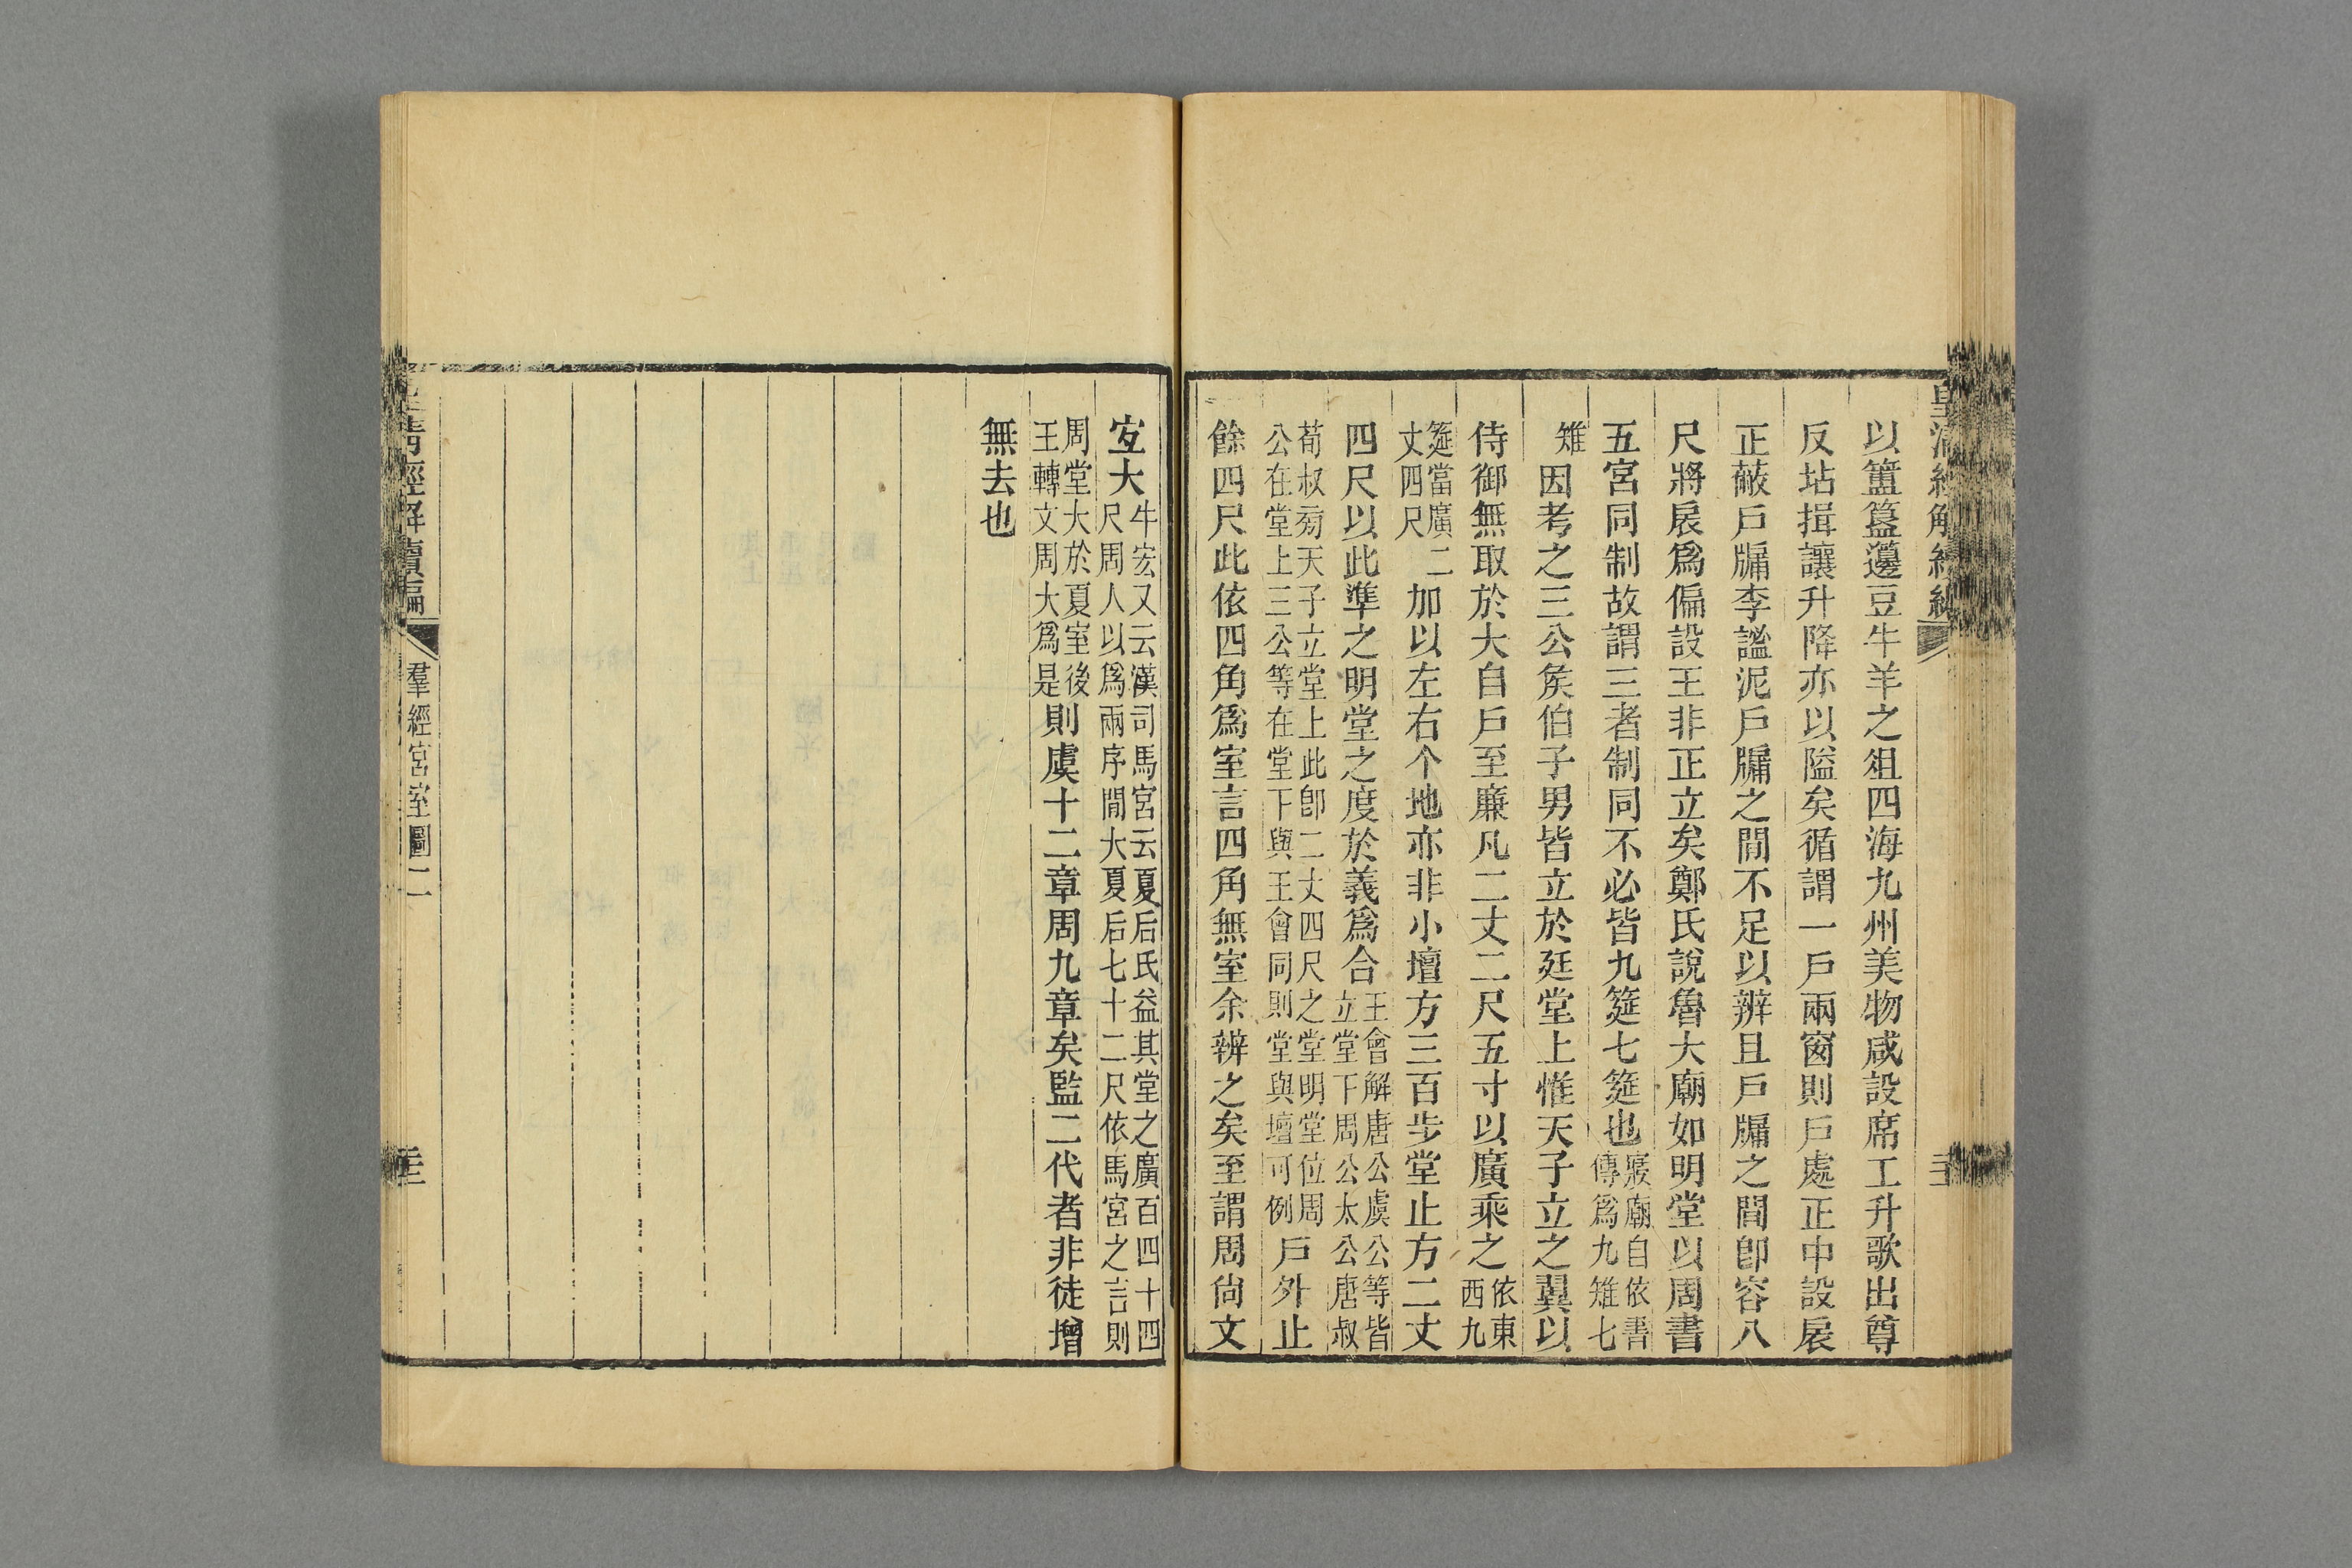 以簠簋籩豆牛羊之俎四海九州美物咸設席工升歌出尊
反坫揖讓升降亦以隘矣循謂一戶兩窗則戶處正中設扆
正蔽戶牖李謐泥戶牖之間不足以辨且戶牖之間卽容八
尺將扆爲偏設王非正立矣鄭氏說魯大廟如明堂以周書
五宮同制故謂三者制同不必皆九筵七筵也寢廟自依書傳爲九雉七
雉因考之三公矦伯子男皆立於廷堂上惟天子立之翼以
侍御無取於大自戶至廉凡二丈二尺五寸以廣乘之依東西九
筵當廣二丈四尺加以左右个地亦非小壇方三百步堂止方二丈
四尺以此準之明堂之度於義爲合王會解唐公虞公等皆立堂下周公太公唐叔
荀叔殤天子立堂上此卽二丈四尺之堂明堂位周公在堂上三公等在堂下與王會同則堂與壇可例戶外止
餘四尺此依四角爲室言四角無室余辨之矣至謂周尙文
宐大牛宏又云漢司馬宮云夏后氏益其堂之廣百四十四尺周人以爲兩序間大夏后七十二尺依馬宮之言則
周堂大於夏室後王轉文周大爲是則虞十二章周九章矣監二代者非徒增
無去也
皇清經解續編
羣經宮室圖二